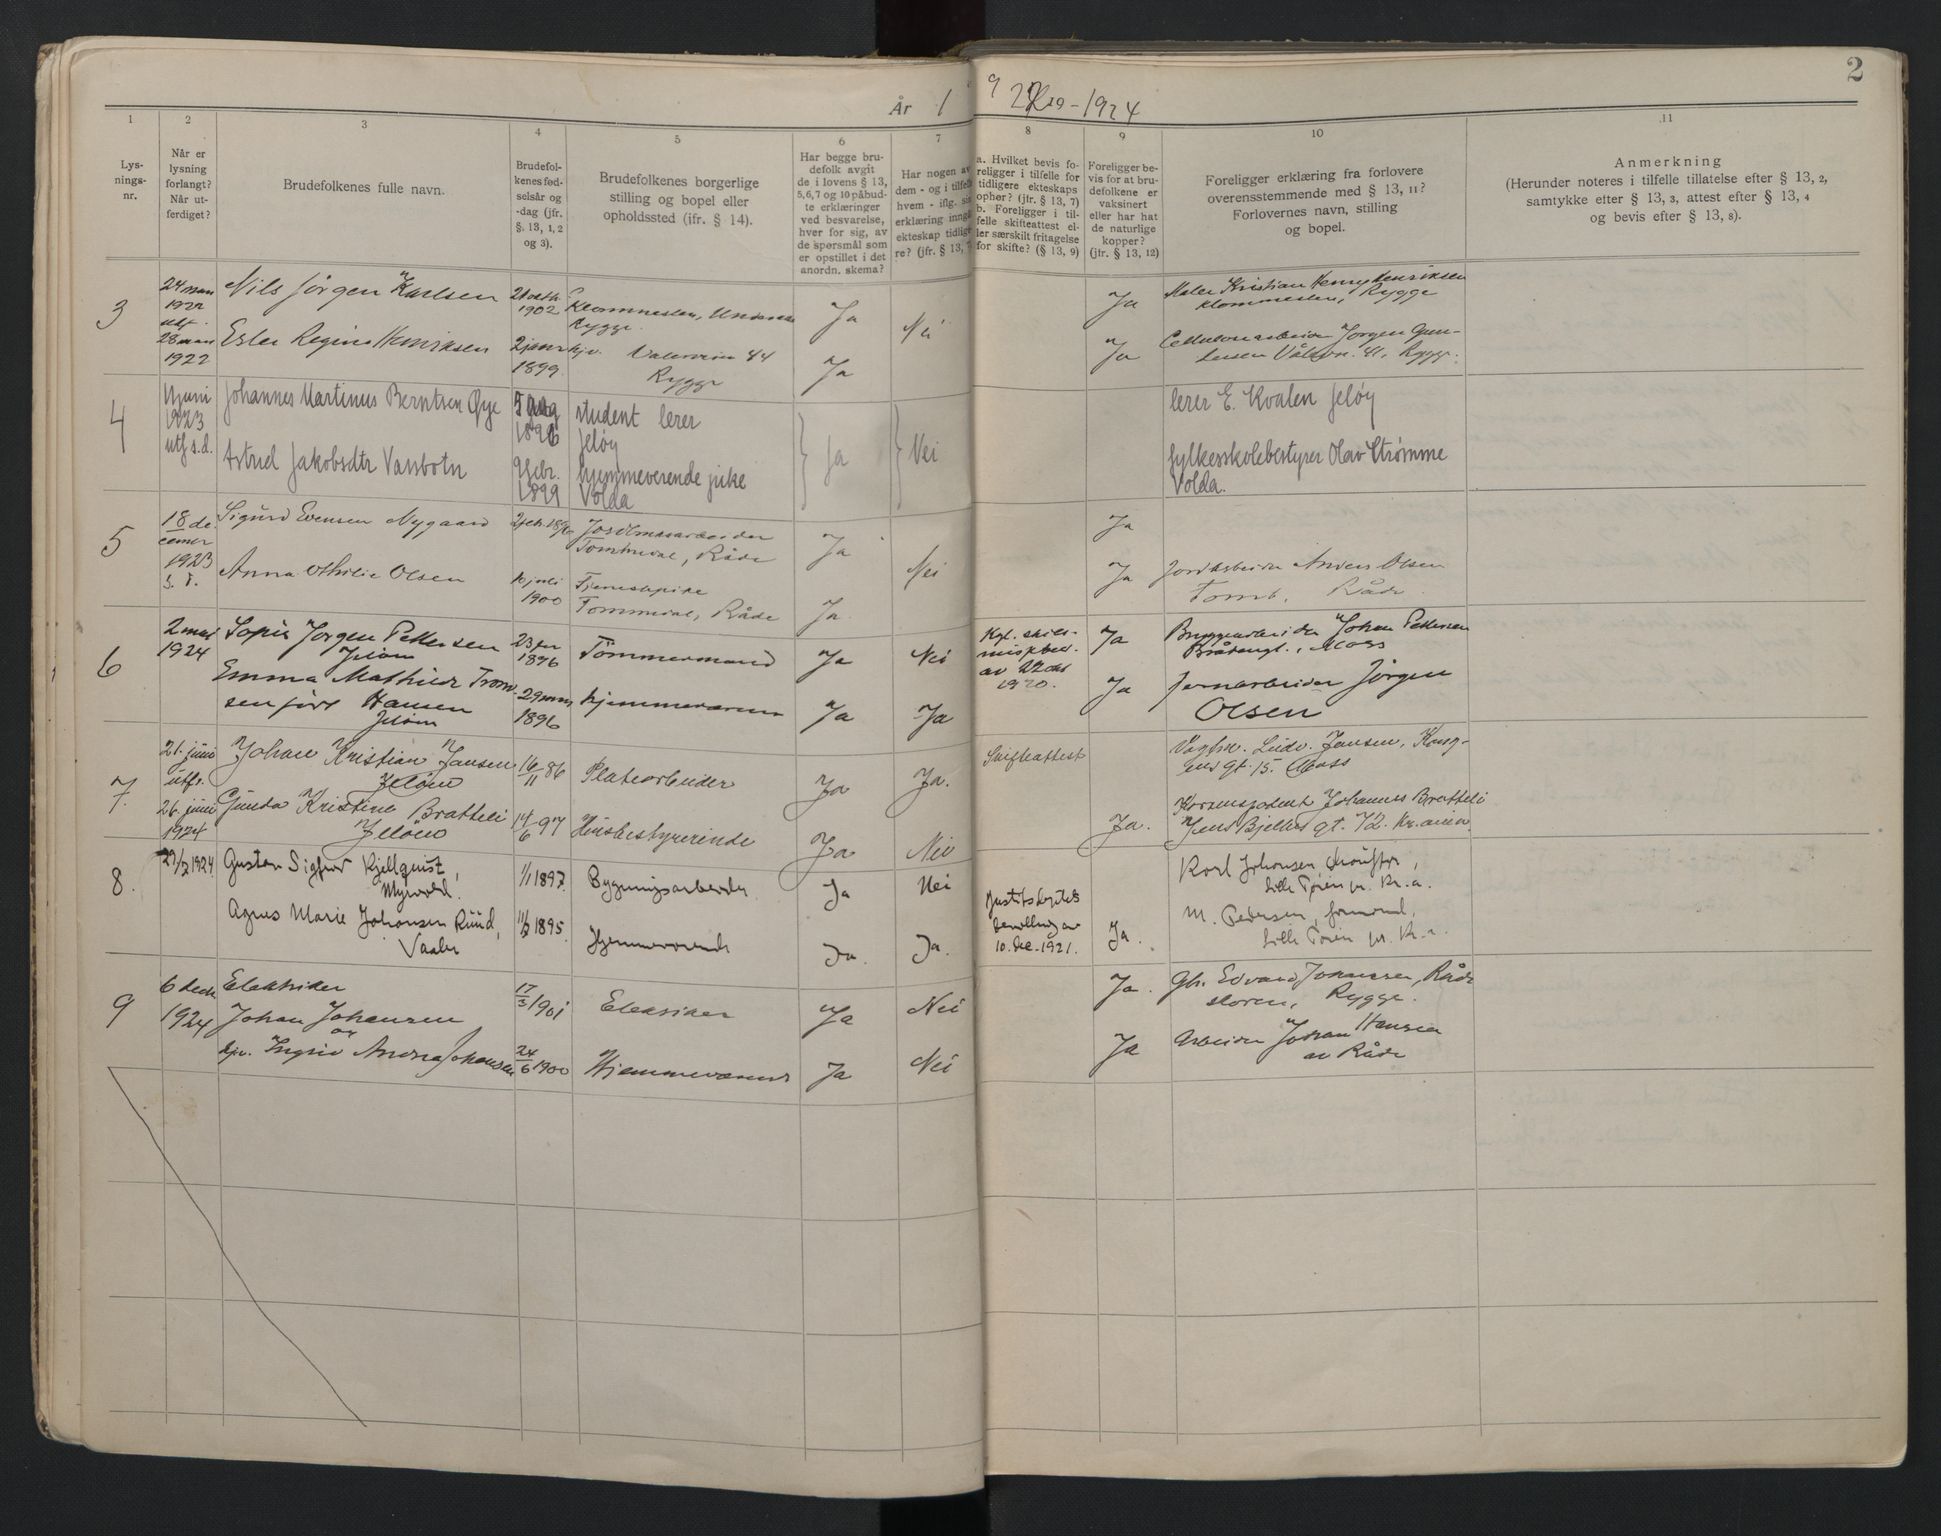 2
År 1922 - 1924
1
2
3
4
5
6
7
8
9
10
11
Lysnings-
nr.
Når er
lysning
forlangt?
Når ut-
ferdiget?
Brudefolkenes fulle navn.
Brudefol-
kenes fød-
selsår og
-dag (jfr.
§. 13, 1, 2
og 3).
Brudefolkenes borgerlige
stilling og bopel eller
opholdssted (ifr. § 14).
Har begge bru-
defolk avgit
de i lovens § 13,
5,6,7 og 10 påbud-
te erklæringer
ved besvarelse,
hver for sig, av
de spørsmål som
er opstillet i det
anordn. skema?
Har nogen av
dem - og i tilfelle
hvem - iflg. sin
erklæring inngå
ekteskap tidlige-
re? (jfr. § 13, 7
a. Hvilket bevis fo-
religger i tilfelle for
tidligere ekteskaps
opher? (jtr. § 13, 7)
b. Foreligger i til-
felle skifteattest el-
ler særskilt fritagelse
for skifte? (§ 13, 9)
Foreligger be-
vis for at bru-
defolkene er
vaksinert
eller har hat
de naturlige
kopper?
(jtr. § 13, 12)
Foreligger erklæring fra forlovere
overensstemmende med § 13, 11?
Forlovernes navn, stilling
og bopel.
Anmerkning
(Herunder noteres i tilfelle tillatelse efter § 13, 2,
samtykke efter § 13, 3, attest efter § 13, 4
og bevis efter § 13, 8).
3
24 mars
1922
utf.
28 mars
1922
Nils Jørgen Karlsen
Ester Regine Henriksen
1902
2 janr
1899
Rygge.
hjv.
44
Rygge
Ja
Ja
Nei
Ja
Ja
Maler Kristian Henry Henriksen
Rygge
Cellulosearbeider Jørgen Gun-
41, Rygge.
4
11 juni
1923
utf s.d.
Johannes Martinus Berntsen Øye
Astrid Jakobsdtr Vassbotn
5 aug
1896
9 febr.
1899
student lerer
Jeløy
hjemmeverende pike
Volda
Ja
Nei
lerer E. Kvalen Jeløy
fylkesskolebestyrer Olav Strømme
Volda.
5
18 de-
cemer
1923
s. d.
Sigurd Evensen Nygaard
Anna Othilie Olsen
10 juli
1900
Jordbruksarbeider
Tommedal, Råde
Tjenestepike
Tommedal, Råde
Ja
Ja.
Nei
Ja
Ja
Jordarbeider Anders Olsen
Tomb, Råde.
6
2 mai
1924
Jørgen Pettersen
Jeløen
Emma Mathilde Trom-
sen født Hansen
Jeløen
23 jan
1896
29 mars
1896
Tømmermand
hjemmeværende
Ja
Ja
Nei
Ja
Kgl. skils-
missebev.
av 22 okt
1920.
Ja
Ja
Bryggearbeider Johan Pettersen
Moss
Jernarbeider Jørgen
Olsen
7.
21. juni
utf.
26. juni
1924
Johan Kristian Jansen
Jeløen
Gunda Kristine Bratteli
Jeløen
16/11 86
14/6 97
Platearbeider
Husbestyrerinde
Ja
Ja
Ja.
Nei
Skifteattest
Ja.
Vogtm. Ludv. Jansen, Kong-
ens gt. 15. Moss
Korrespodent Johannes Bratteli
Jens Bjelkes gt. 72. Kr.ania
8.
1924
Gustav Sigfrid Kjellquist,
Myrvold.
Agnes Marie Johansen Ruud,
Vaaler
1/1 1897.
1895.
Bygningsarbeider
Hjemmeværende
Ja
Ja.
Nei
Ja.
bevilling av
10. dec. 1921.
Ja.
Karl Johansen, chauffør,
Lille Tøien pr. Kr.a.
M. Pedersen, formand,
Lille Tøien pr. Kr.a.
9
6 decbr
1924
Elektriker
Johan Johansen
og
hjv. Ingrid Andrea Johansen
17/3 1901
24/6 1900
Elektriker
Hjemmeværende
Ja
Ja
Nei
Nei
Ja.
Ja
Gbr. Edvard Johansen, Råde
Rygge.
Arbeider Johan Hansen
av Råde